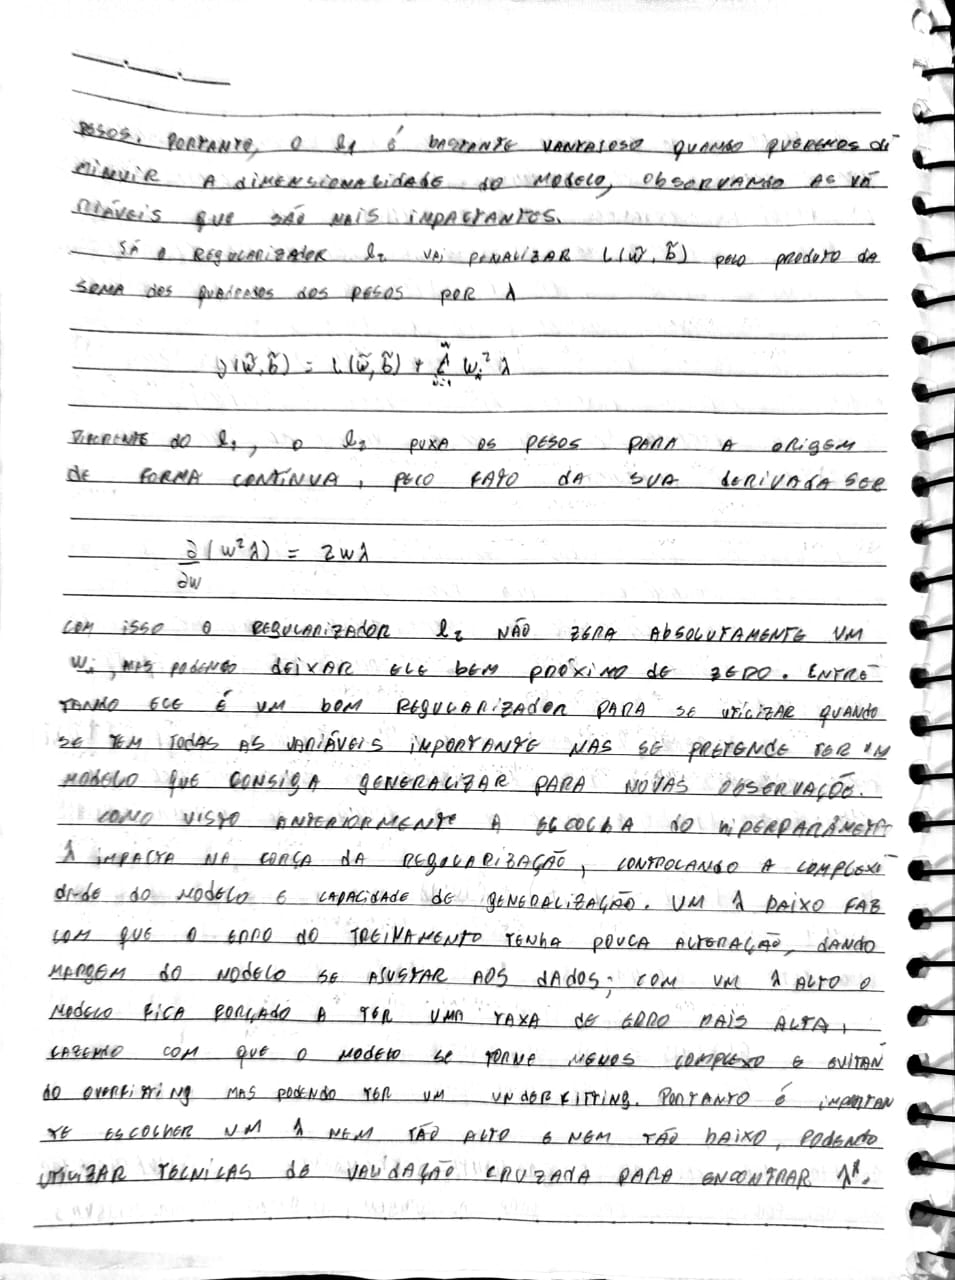 PESOS. PORTANTO, O l1 É BASTANTE VANTAJOSO QUANDO QUEREMOS DI
MINUIR A DIMENSIONALIDADE DO MODELO, OBSERVANDO AS VA
RIÁVEIS QUE SÃO MAIS IMPACTANTES.
JÁ O REGULARIZADOR l2 VAI PENALIZAR L(w̃, b̃) PELO PRODUTO DA
SOMA DOS QUADRADOS DOS PESOS POR λ
J(w̃, b̃) = L(w̃, b̃) + Σ wi² λ
DIFERENTE DO l1, O l2 PUXA OS PESOS PARA A ORIGEM
DE FORMA CONTÍNUA, PELO FATO DA SUA DERIVADA SER
∂/∂w (w²λ) = 2wλ
COM ISSO O REGULARIZADOR l2 NÃO ZERA ABSOLUTAMENTE UM
wi, MAS PODENDO DEIXAR ELE BEM PRÓXIMO DE ZERO. ENTRE
TANTO ELE É UM BOM REGULARIZADOR PARA SE UTILIZAR QUANDO
SE TEM TODAS AS VARIÁVEIS IMPORTANTE MAS SE PRETENDE TER UM
MODELO QUE CONSIGA GENERALIZAR PARA NOVAS OBSERVAÇÕE.
COMO VISTO ANTERIORMENTE A ESCOLHA DO HIPERPARÂMETR
λ IMPACTA NA FORÇA DA REGULARIZAÇÃO, CONTROLANDO A COMPLEXI
DADE DO MODELO E CAPACIDADE DE GENERALIZAÇÃO. UM λ BAIXO FAZ
COM QUE O ERRO DO TREINAMENTO TENHA POUCA ALTERAÇÃO, DANDO
MARGEM DO MODELO SE AJUSTAR AOS DADOS; COM UM λ ALTO O
MODELO FICA FORÇADO A TER UMA TAXA DE ERRO MAIS ALTA,
FAZENDO COM QUE O MODELO SE TORNE MENOS COMPLEXO E EVITAN
DO OVERFITTING MAS PODENDO TER UM UNDERFITTING. PORTANTO É IMPORTAN
TE ESCOLHER UM λ NEM TÃO ALTO E NEM TÃO BAIXO, PODENDO
UTILIZAR TECNICAS DE VALIDAÇÃO CRUZADA PARA ENCONTRAR λ*.